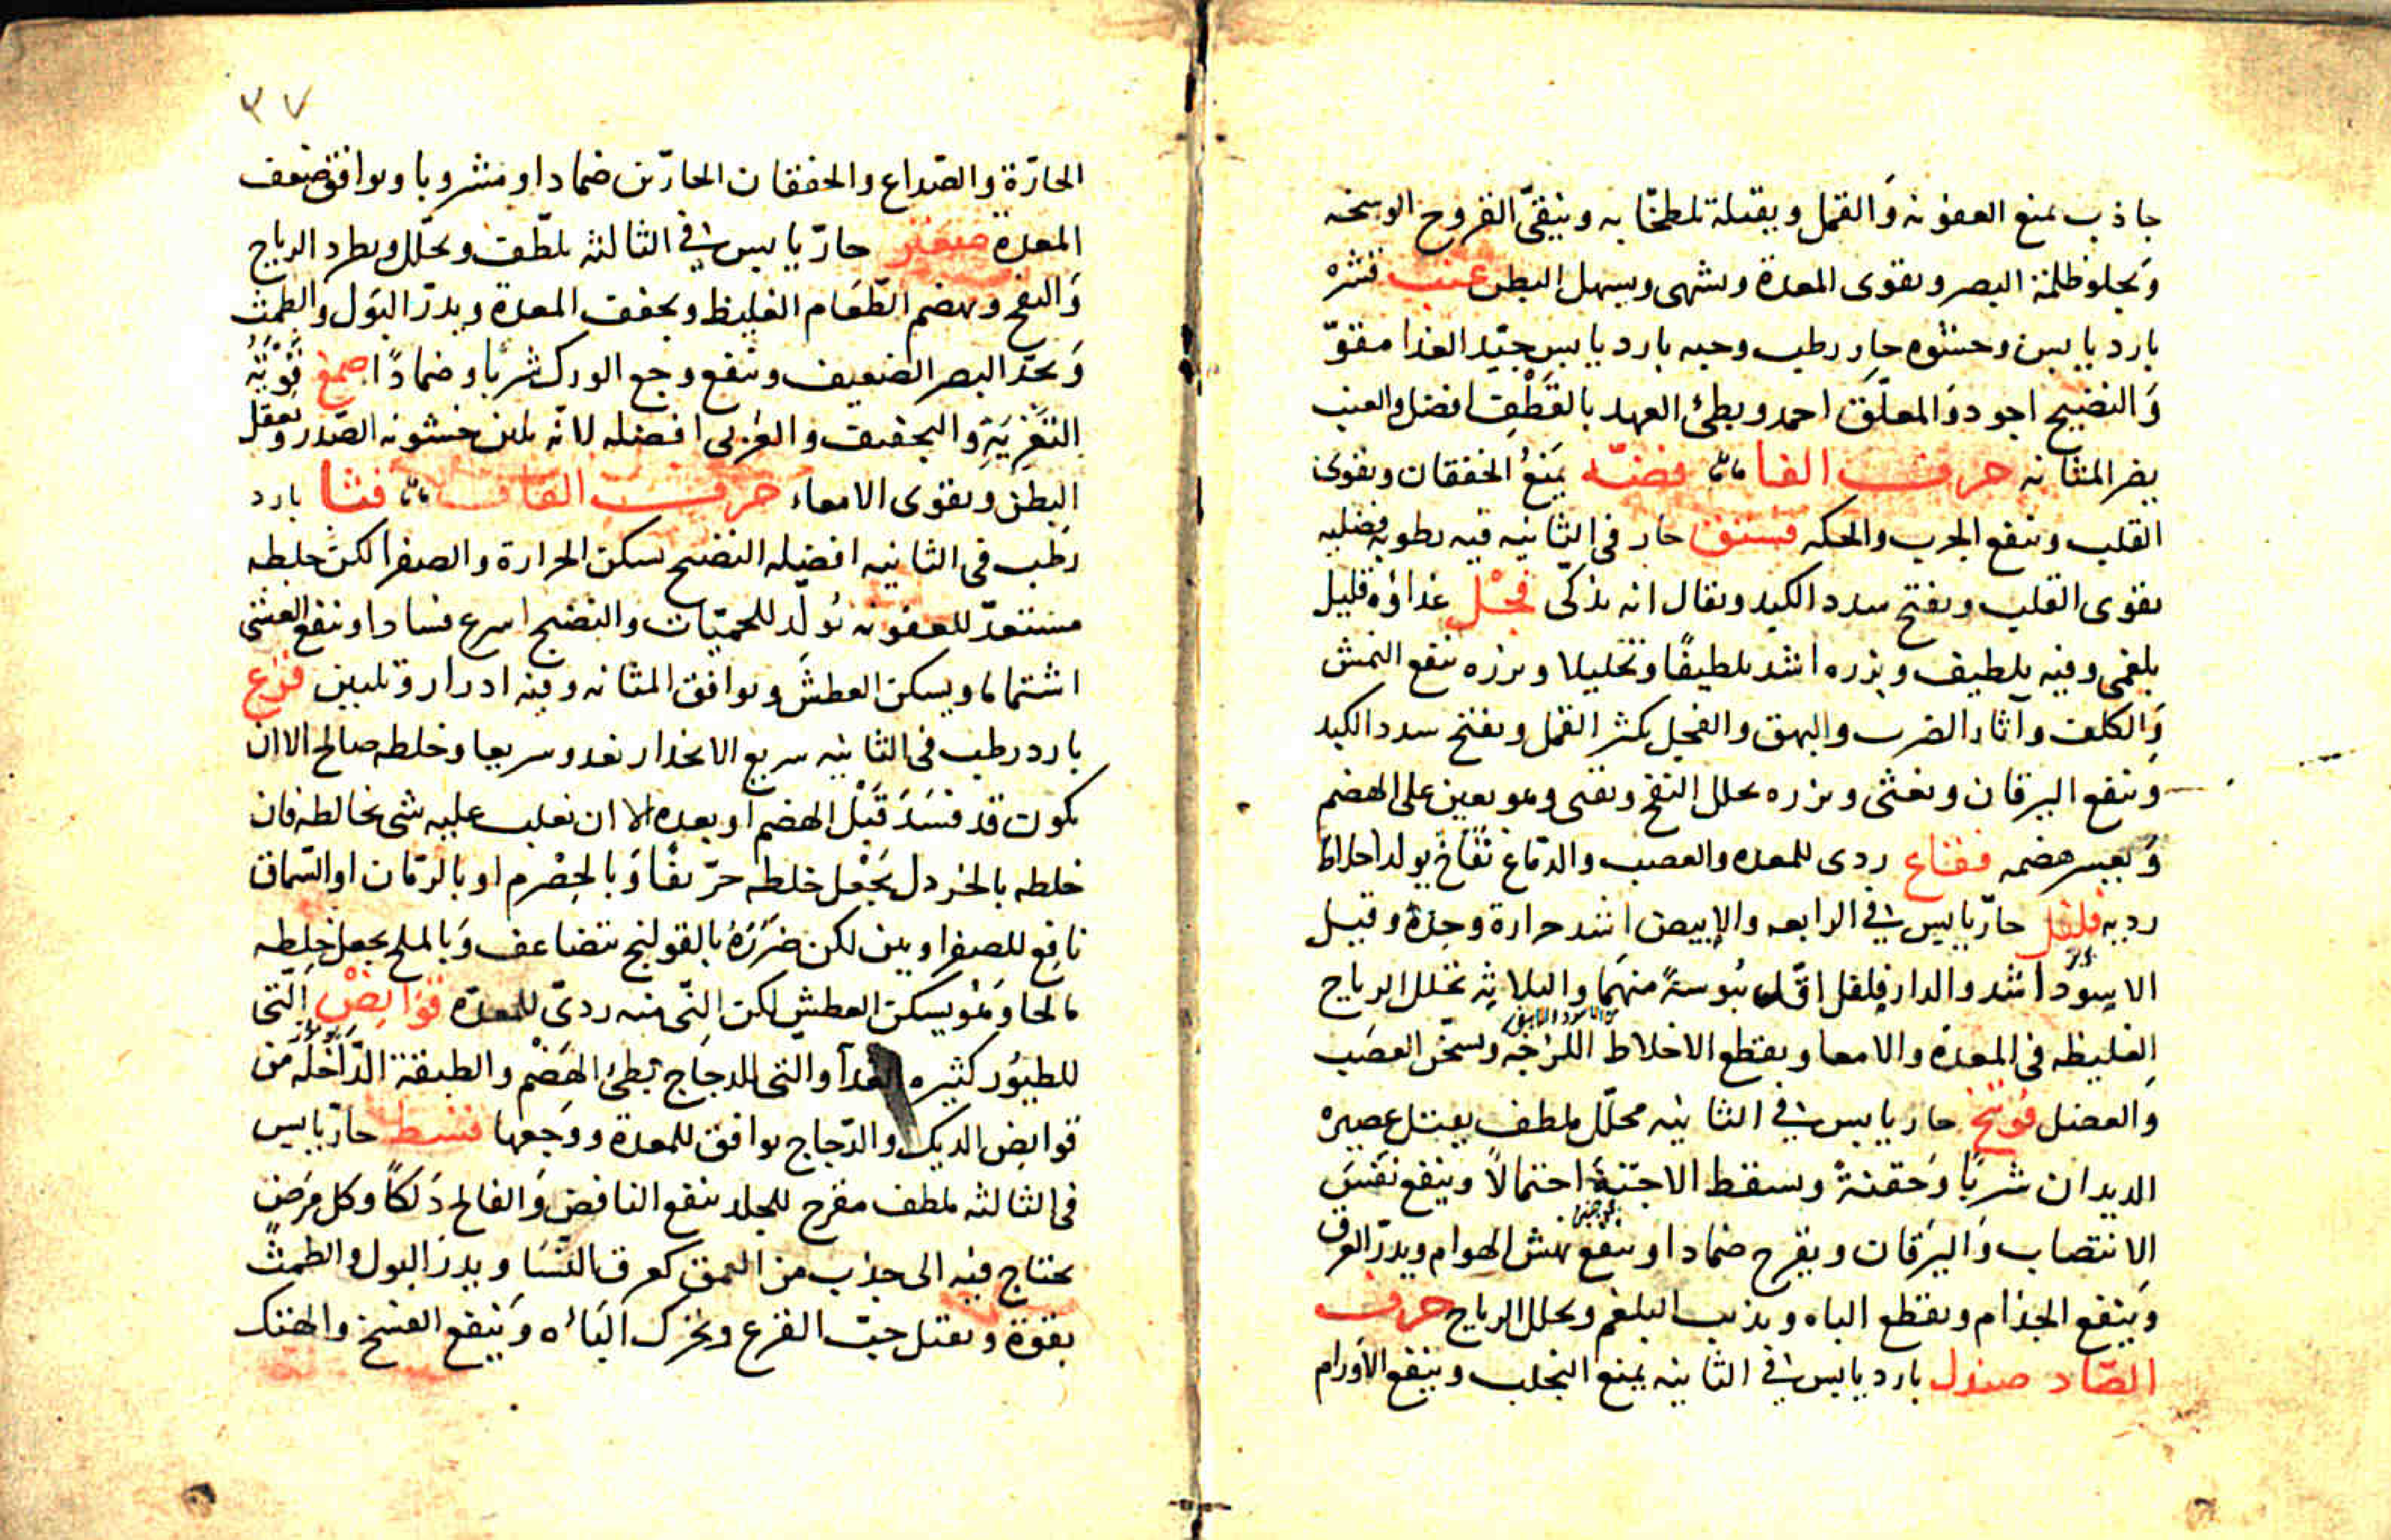 جاذب يمنع العفونه وَالقمل ويقتله لطخًا به وينقّى القروح الوسخه
وَيجلو ظلمة البصر ويقوى المعدة ويشهى ويسهل البطن عنب قشرهُ
بارد يابس وحشوه حار رطب وحبه بارد يابس جيّد الغذا مقوّ
وَالنضيج اجود وَالمعلّق احمد وبطئ العهد بالقَطْفِ افضل والعنب
يضر المثانه حرف الفا فضّه يمَنعُ الخفقان ويقوى
القلب وينفع الجرب والحكه فستق حار فى الثانيه فيه رطوبة فضليه
يقوى القلب ويفتح سدد الكبد ويقال انه يذكى فجْل غذاؤه قليل
بلغمى وفيه تلطيف وبزره اشد تلطيفًا وتحليلا وبزره ينفع النمش
وَالكلف وآثار الضرب والبهق والفجل يكثر القمل ويفتح سدد الكبد
وينفع اليرقان ويغثى وبزره يحلل النفخ ويقى وهو يعين على الهضم
وَيعسر هضمه فقاع ردى للمعده والعصب والدّماغ نفّاخ يولد اخلاطا
رديه فلفل حارّ يابس فى الرابعه والابيض اشد حرارة وحِدّة وقيل
الاسود اشد والدارفلفل اقل يُبوسةً منهما والثلاثه تحلل الرياح
من الاسود والابيض
الغليظه فى المعدَة والامعا ويقطع الاخلاط اللزجَه ويسخّن العصَب
وَالعضل فُوتنج حار يابس فى الثانيه محلّل ملطف يقتل عصيره
الديدان شربًا وَحقنةً ويسقط الاجنّة احتمالاً وينفع نفَسَ
الانتصاب وَاليَرقان ويقرح ضمادا وينفع نهش الهوام ويدرّ العرق
وَينفع الجذام ويقطع الباه ويذيب البلغم ويحلل الرياح حرف
الصّاد صندل بارد يابس فى الثانيه يمنع التحلب وينفع الاَورام
٣٧
الحارّة والصّداع والخفقان الحارّين ضمادا ومشروبا ويوافق ضعف
المعدة صعتر حارّ يابس فى الثالثه يلطّف ويحلّل ويطرد الرياح
وَالنفخ ويهضم الطّعَام الغليظ ويجفف المعدة ويدرّ البَول والطمث
وَيحدّ البصر الضعيف وينفع وجع الورك شربًا وضمادًا صمغ قوّتهُ
التغرِيَةِ والتجفيف والعربى افضله لانّه يلين خشونه الصّدر ويعقل
البطن ويقوى الامعاء حرف القاف قثا بارد
رطب فى الثانيه افضله النضيح يسكن الحرارة والصفرا لكن خلطه
مستعدّ للعفونه يُولّد للحميّات والنضيج اسرع فسادا وينفع الغشى
اشتماما ويسكن العطشَ ويوافق المثانه وفيه ادرار وتليين قرع
بارد رطب فى الثانيه سريع الانحدار يغدو سريعا وخلطه صالح الا ان
يكون قد فسَدَ قَبْل الهضم او بعده الا ان يغلب عليه شى يخالطه فان
خلطه بالخردل يَجْعل خلطه حرّيفًا وَبالحِصْرم او بالرمّان او السّماق
نافع للصفراويين لكن ضَرَرَهُ بالقولنج يتضاعف وَبالملح يجعل خلطه
مالحا وَهُو يسكن العطش لكن النّى منه ردىّ للمعدَه قوَانِصْ الّتى
للطيُور كثيره الغدآ والتى للدجاج بَطئ الهَضْم والطبقة الدّاخلَه من
قوانِص الديك والدّجاج يوافق للمعدة ووَجعها قسط حارّ يابس
فى الثالثه ملطف مقرح للجلد ينفع النافضَ وَالفالج دَلكاً وكل مَرَض
يحتاج فيه الى جذب من العمق كعرق النَّسَا ويدرّ البول والطمثَ
بقوّة ويقتل حبّ القرع ويحرّك البَاه وَينفع الفسَخ والهتك